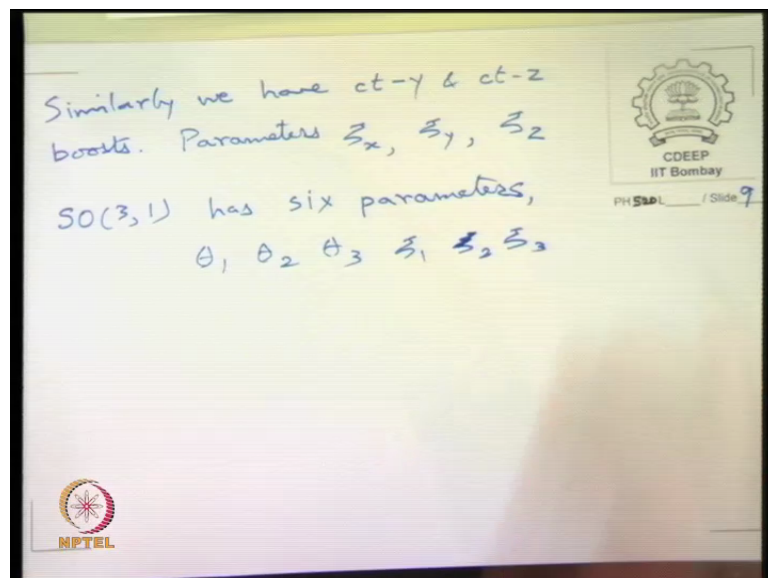 Similarly we have ct-y & ct-z
boosts. Parameters ξx, ξy, ξz
SO(3,1) has six parameters,
θ1 θ2 θ3 ξ1 ξ2 ξ3
CDEEP
IIT Bombay
PH 520 L / Slide 9
NPTEL